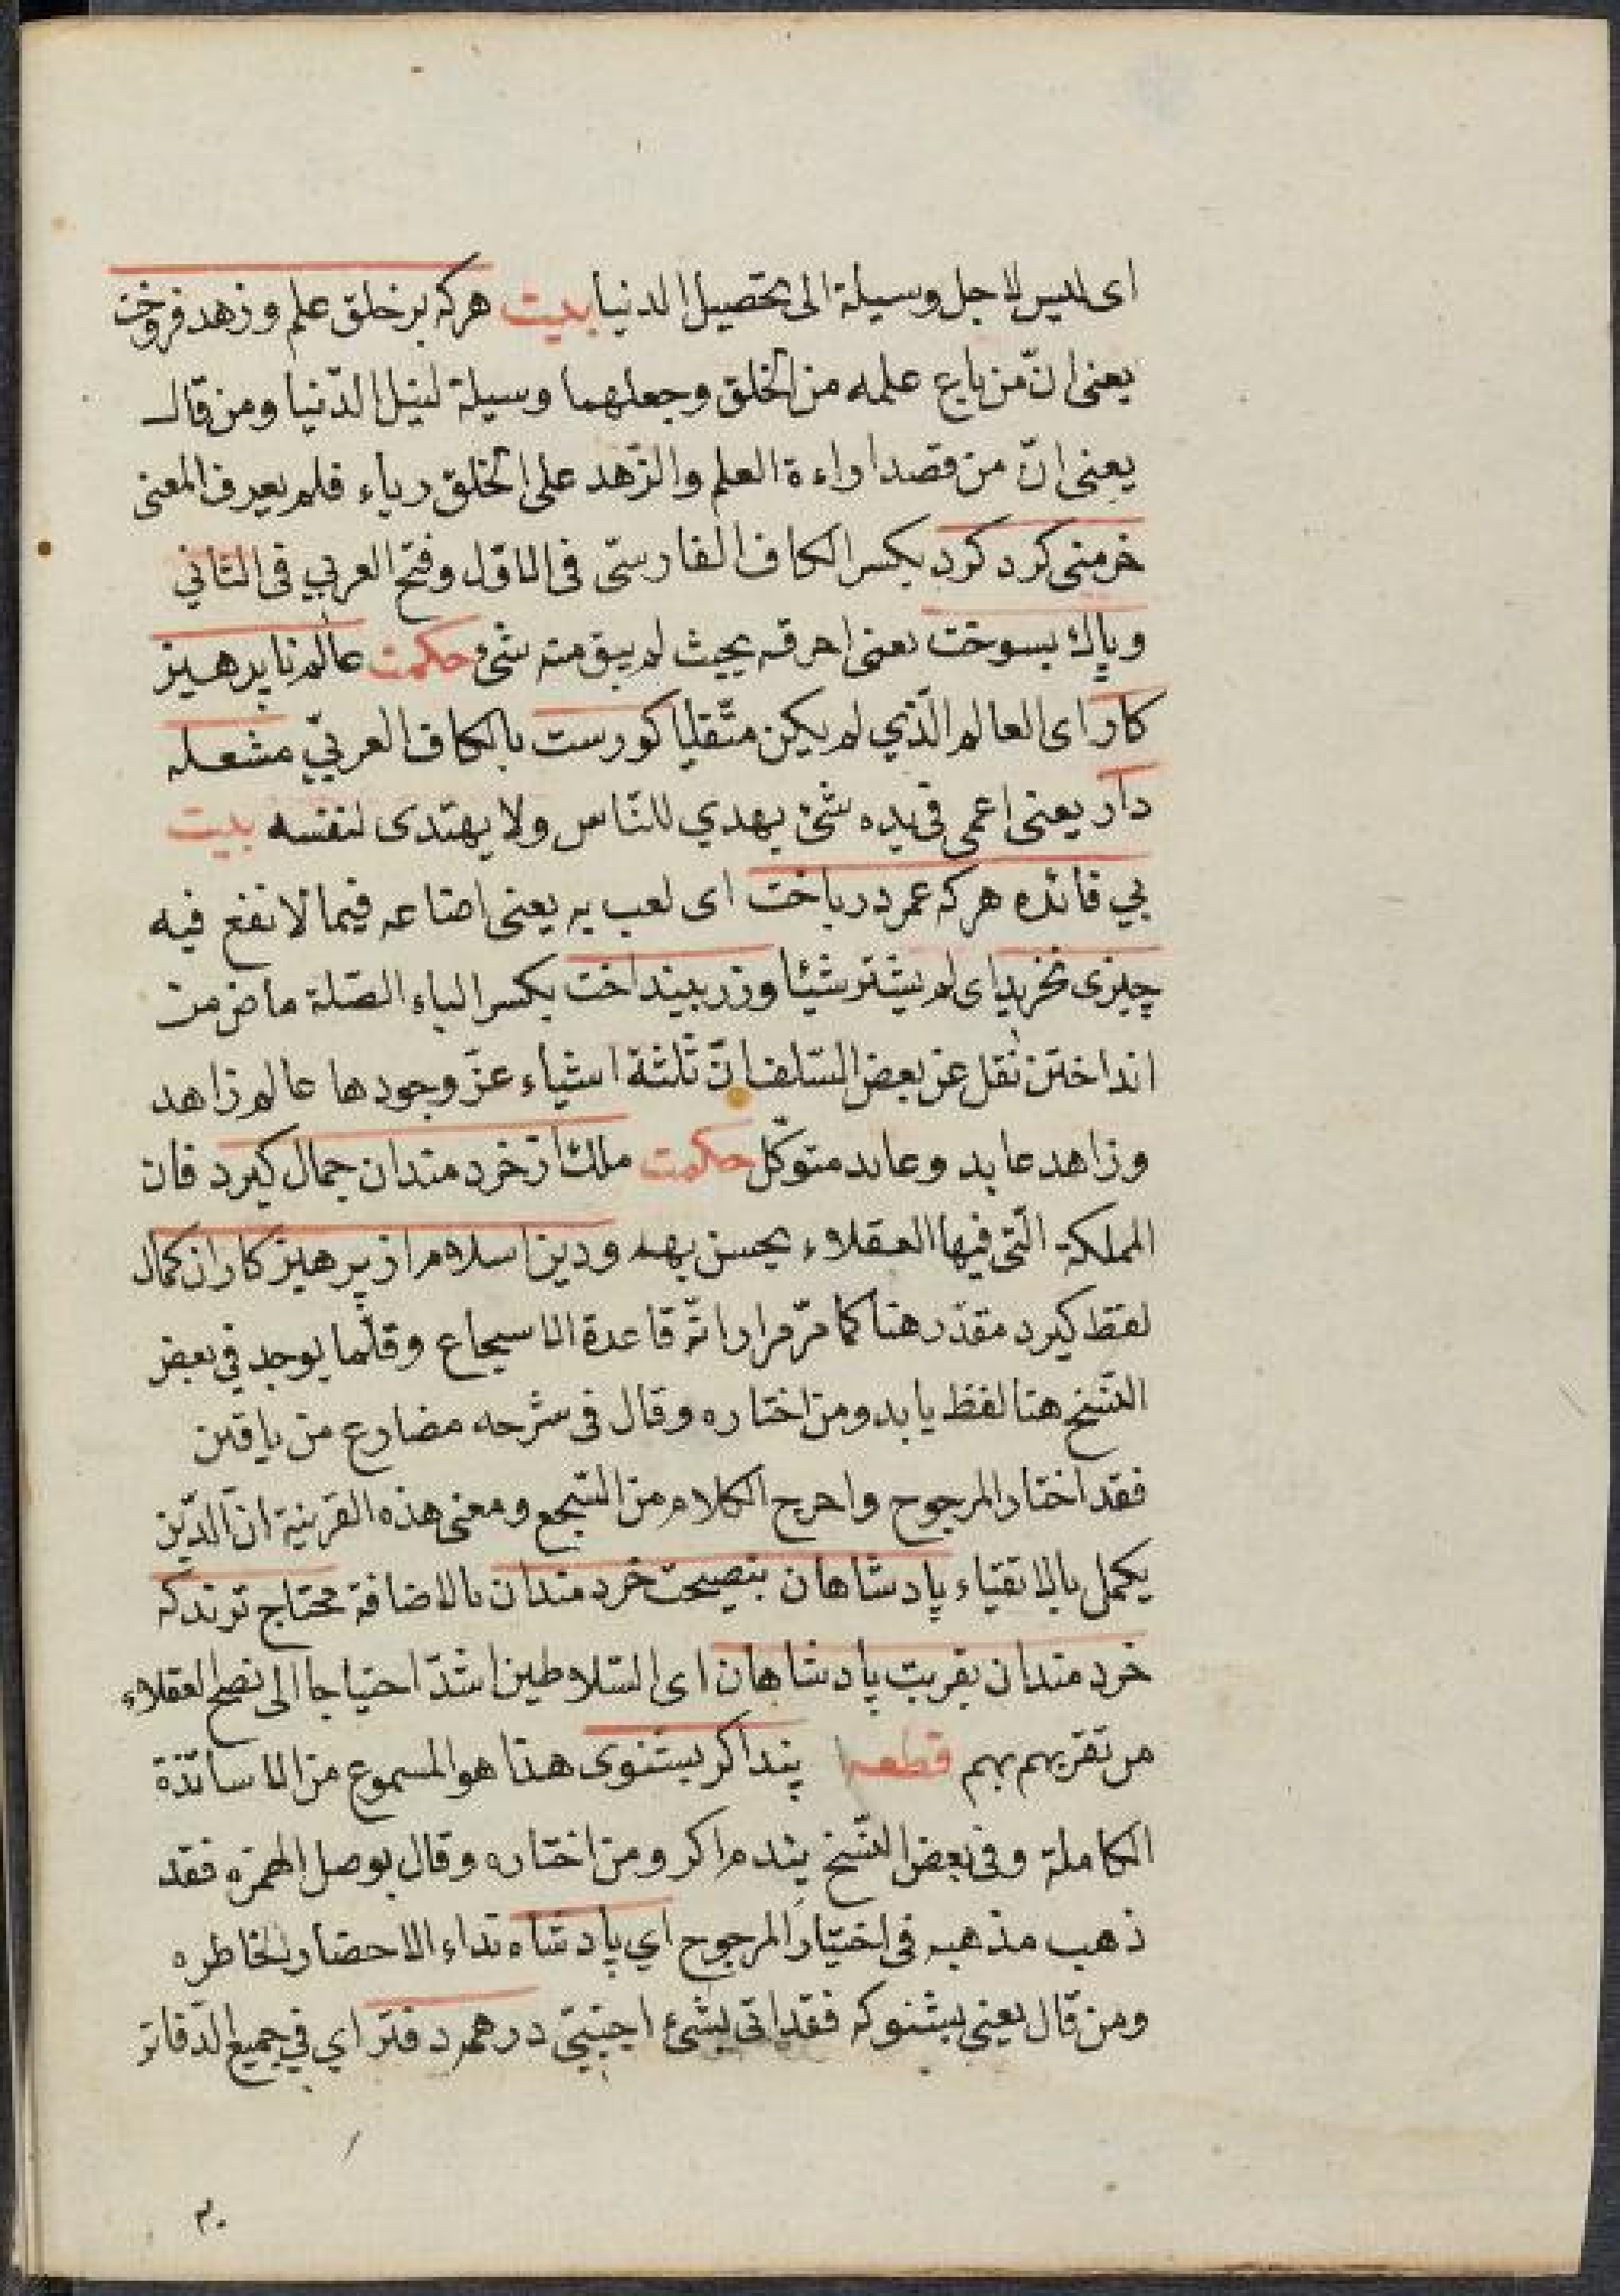 اى ليس لاجل وسيلة الى تحصيل الدنيا بيت هركه بر خلق علم وزهد فروخت
يعنى انّ من باع علمه من الخلق وجعلهما وسيلة لنيل الدّنيا ومن قال
يعنى انّ من قصد اراءة العلم والزّهد على الخلق رياء فلم يعرف المعنى
خرمنى كرد كرد بكسر الكاف الفارسىّ فى الاوّل وفتح العربي فى الثانى
وپاك بسوخت يعنى احرقه بحيث لم يبق منه شئ حكمت عالم ناپرهيز
كار اى العالم الّذي لم يكن متّقيا كورست بالكاف العربىّ مشعله
دار يعنى اعمى فى يده شئ يهدي للنّاس ولا يهتدى لنفسه بيت
بي فائده هركه عمر درباخت اى لعب به يعنى اضاعه فيما لا نفع فيه
چيزى نخريد اى لم يشتر شيئا وزر بينداخت بكسر الباء الصّلة ماض من
انداختن نقل عن بعض السّلف انّ ثلثة اشياء عزّ وجودها عالم زاهد
وزاهد عابد وعابد متوكّل حكمت ملك از خردمندان جمال كيرد فان
المملكة الّتى فيها العقلاء يحسن بهم ودين اسلام از پرهيزكاران كمال
لفظ كيرد مقدّر هنا كما مرّ مرارا انّه قاعدة الاسجاع وقلّما يوجد في بعض
النّسخ هنا لفظ يابد ومن اختاره وقال فى شرحه مضارع من يافتن
فقد اختار المرجوح واخرج الكلام من السّجع ومعنى هذه القرينة انّ الدّين
يكمل بالاتقياء پادشاهان بنصيحت خردمندان بالاضافة محتاج ترند كه
خردمندان بقربت پادشاهان اى السّلاطين اشدّ احتياجا الى نصح العقلاء
من تقربهم بهم قطعه پند اكر بشنوى هذا هو المسموع من الاساتذة
الكاملة وفى بعض النّسخ پندم اكر ومن اختاره وقال بوصل الهمزه فقد
ذهب مذهبه فى اختيار المرجوح اي پادشاه نداء لاحضار الخاطره
ومن قال يعنى بشنو كه فقد اتى بشئ اجنبىّ در همه دفتر اي في جميع الدّفاتر